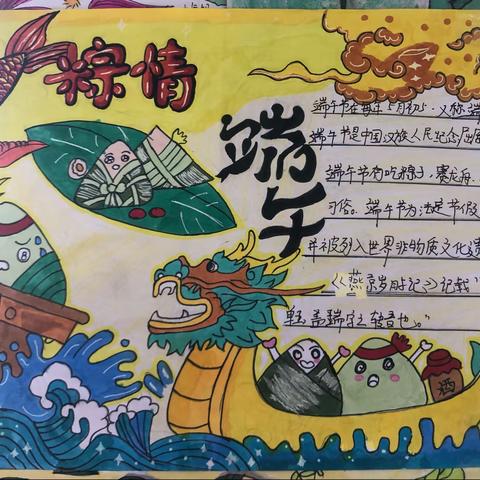 粽情
端午
端午节在每年5月初5.又称端
端午节是中国汉族人民纪念屈原
端午节有吃粽子,赛龙舟、
习俗。端午节为法定节假
并被列入世界非物质文化遗
《燕京岁时记》记载"
盖端字之转音也。"
酒